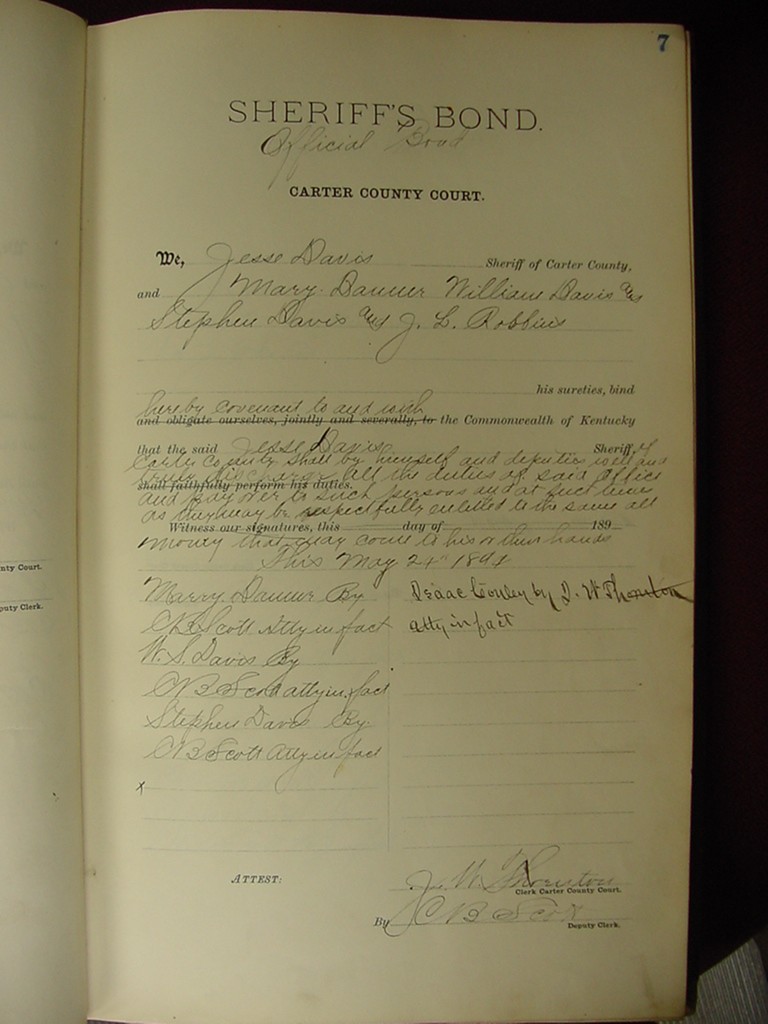 7
SHERIFF'S BOND.
Official Bond
CARTER COUNTY COURT.
We, Jesse Davis Sheriff of Carter County,
and Mary Danner William Davis and
Stephen Davis and J. L. Robbins
his sureties, bind
hereby covenant to and with
and obligate ourselves, jointly and severally, to the Commonwealth of Kentucky
that the said Jesse Davis Sheriff, of
Carter County shall by himself and deputies well and
all the duties of said office
shall faithfully perform his duties.
and pay over to such persons and at such time
as they may be respectfully entitled to the same all
Witness our signatures, this day of 189
money that may come to his or their hands
This May 24" 1894
Marry Danner By
CB Scott Atty in fact
W. S. Davis By
CB Scott atty in fact
Stephen Davis By
CB Scott Atty in fact
x
Isaac Conley by J. W Thornton
atty in fact
ATTEST:
J. W. Thornton
Clerk Carter County Court.
By CB Scott
Deputy Clerk.
nty Court.
puty Clerk.